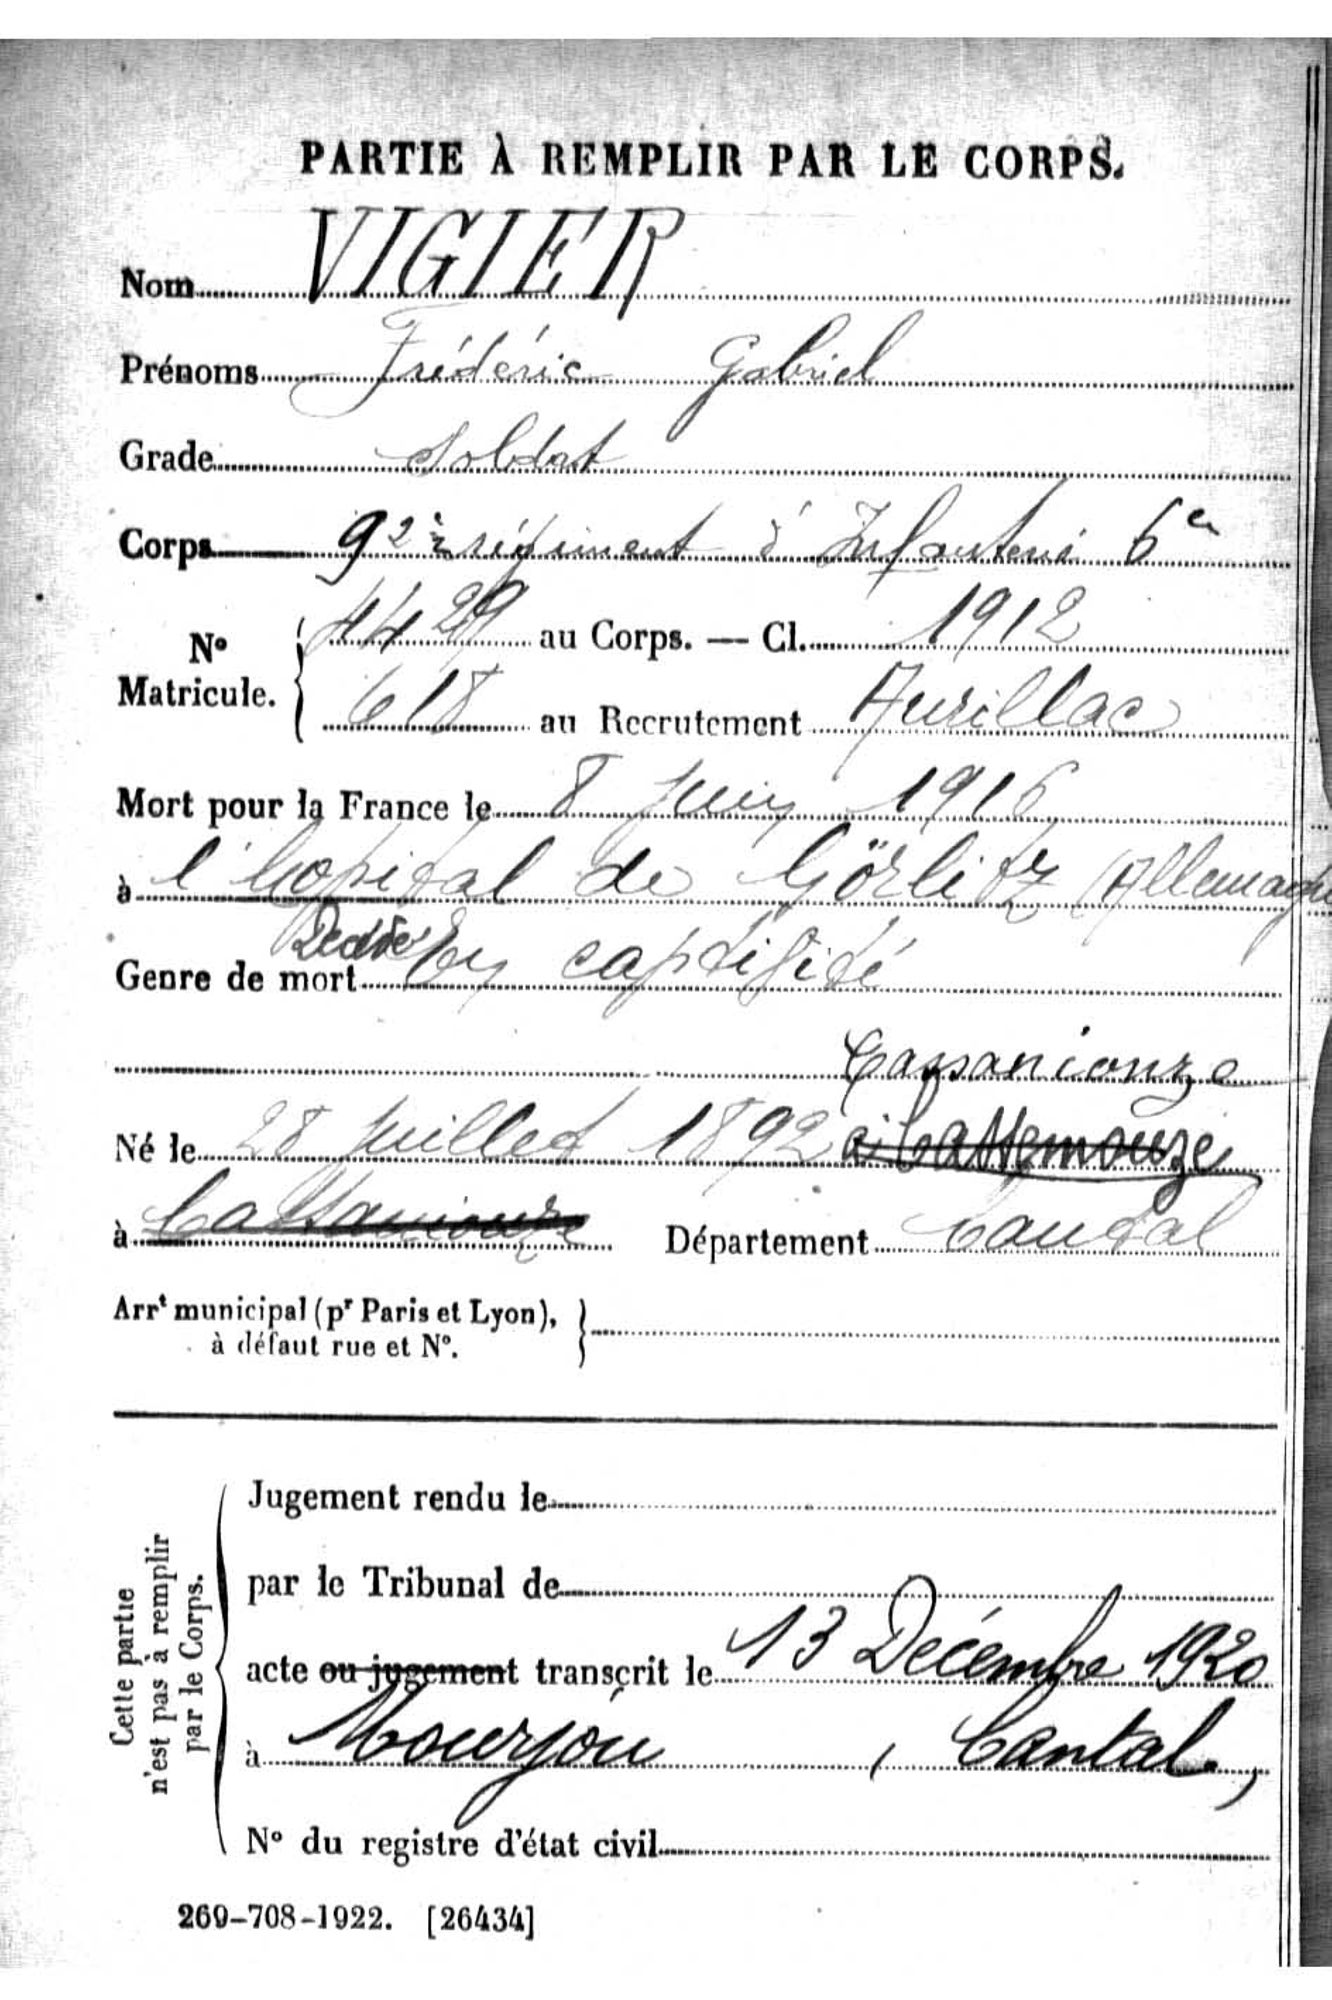 PARTIE À REMPLIR PAR LE CORPS.
Nom VIGIER
Prénoms Frédéric Gabriel
Grade Soldat
Corps 92è régiment d'Infanterie 6e
No Matricule. { 4429 au Corps. — Cl. 1912
618 au Recrutement Aurillac
Mort pour la France le 8 Juin 1916
à l'hopital de Görlitz (Allemagne
Genre de mort Décédé En captivité
Cassaniouze
Né le 28 Juillet 1892 à Cassaniouze
à Cassaniouze Département Cantal
Arrt municipal (pr Paris et Lyon), }
à défaut rue et No.
Cette partie n'est pas à remplir par le Corps.
Jugement rendu le
par le Tribunal de
acte ou jugement transcrit le 13 Décembre 1920
à Mourjou (Cantal)
No du registre d'état civil
269-708-1922. [26434]